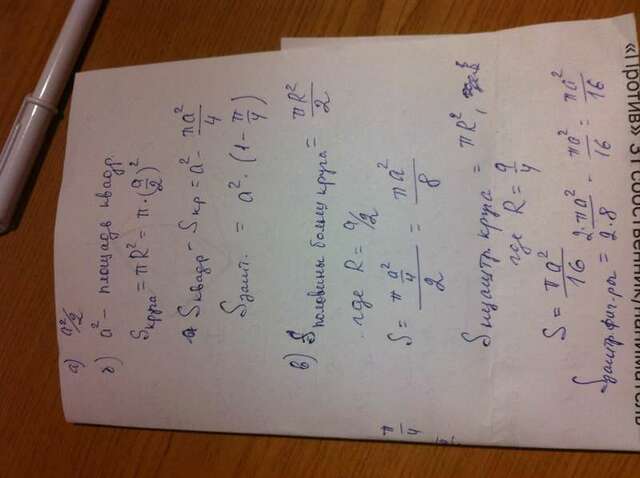 а) a²/2
б) a² - площадь квадр.
Sкруга = πR² = π·(a/2)²
Sквадр - Sкр = a² - πa²/4
Sзашт. = a²·(1 - π/4)
в) Sполовины больш круга = πR²/2
где R = a/2
S = (π a²/4)/2 = πa²/8
π/4
Sнезаштр. круга = πR²,
где R = a/4
S = πa²/16
Sзаштр.фиг-ры = 2·πa²/2·8 - πa²/16 = πa²/16
«Против» 31 собственник/нанимател